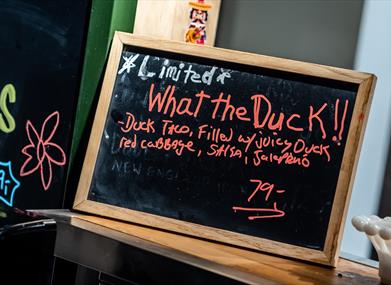 *Limited*
What the Duck!!
Duck Taco, Filled w/ juicy Duck
red cabbage, Salsa, Jalapeño
NEW
79:-